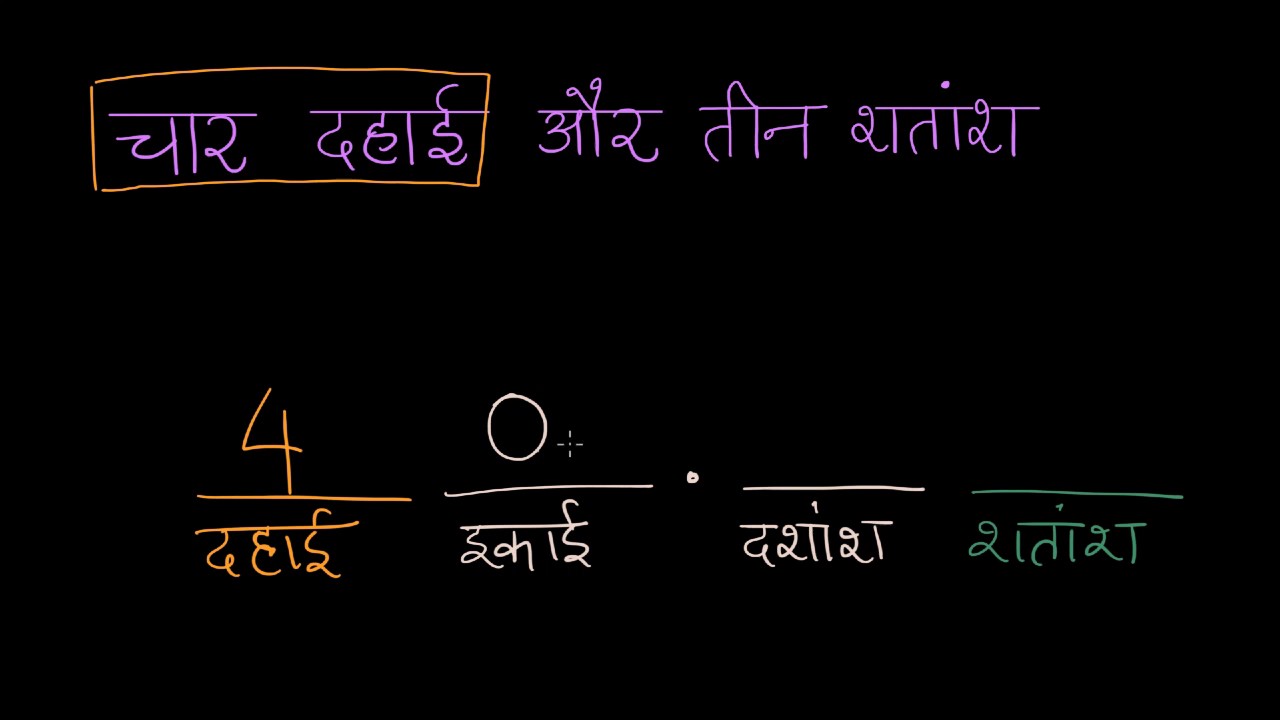 चार दहाई और तीन शतांश
4 0 .
दहाई इकाई दशांश शतांश